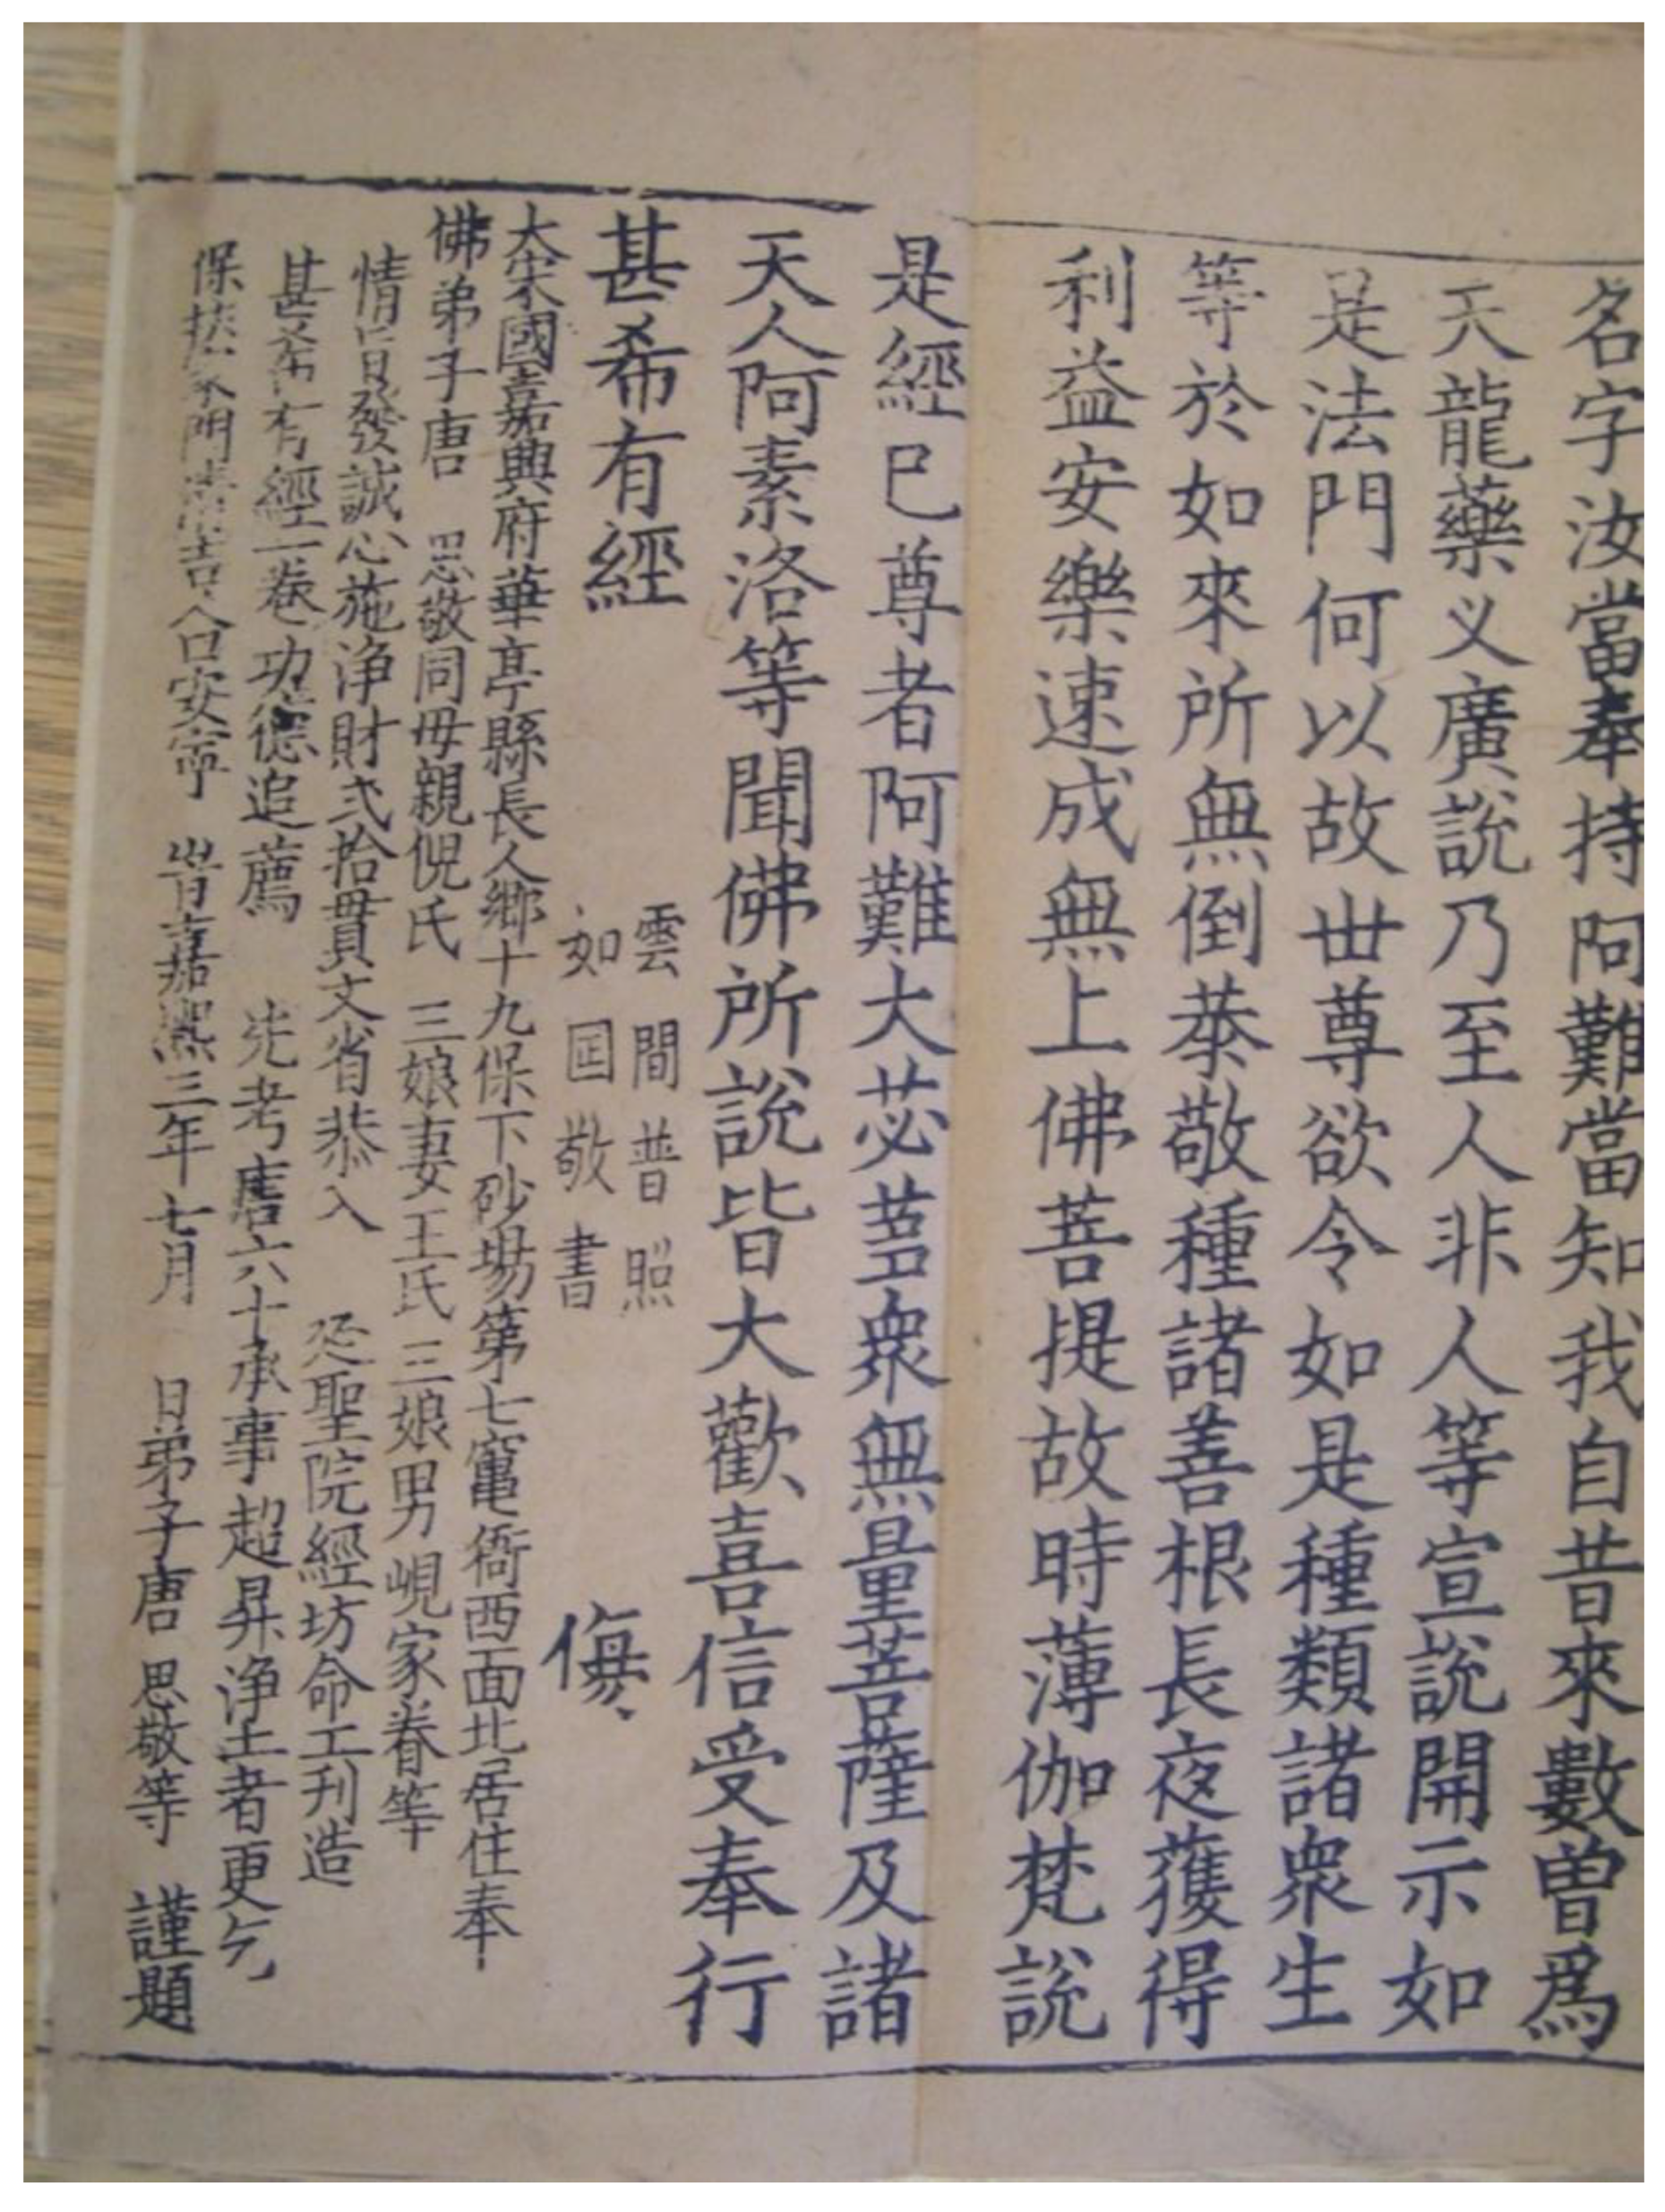 名字汝當奉持阿難當知我自昔來數曽爲
天龍藥义廣說乃至人非人等宣說開示如
是法門何以故世尊欲令如是種類諸衆生
等於如來所無倒恭敬種諸善根長夜獲得
利益安樂速成無上佛菩提故時薄伽梵說
是經已尊者阿難大苾蒭衆無量菩薩及諸
天人阿素洛等聞佛所說皆大歡喜信受奉行
甚希有經
雲間普照
如囙敬書
侮
大宋國嘉興府華亭縣長人鄉十九保下砂場第七竈衙西面北居住奉
佛弟子唐 思敬同母親倪氏 三娘妻王氏三娘男峴家眷等
情旨發誠心施净財弍拾貫文省恭入 聖院經坊命工刋造
甚希有經一卷功德追薦 先考唐六十承事超昇净土者更乞
保扶家門清吉人口安寧 旹嘉熙三年七月 日弟子唐 思敬等 謹題